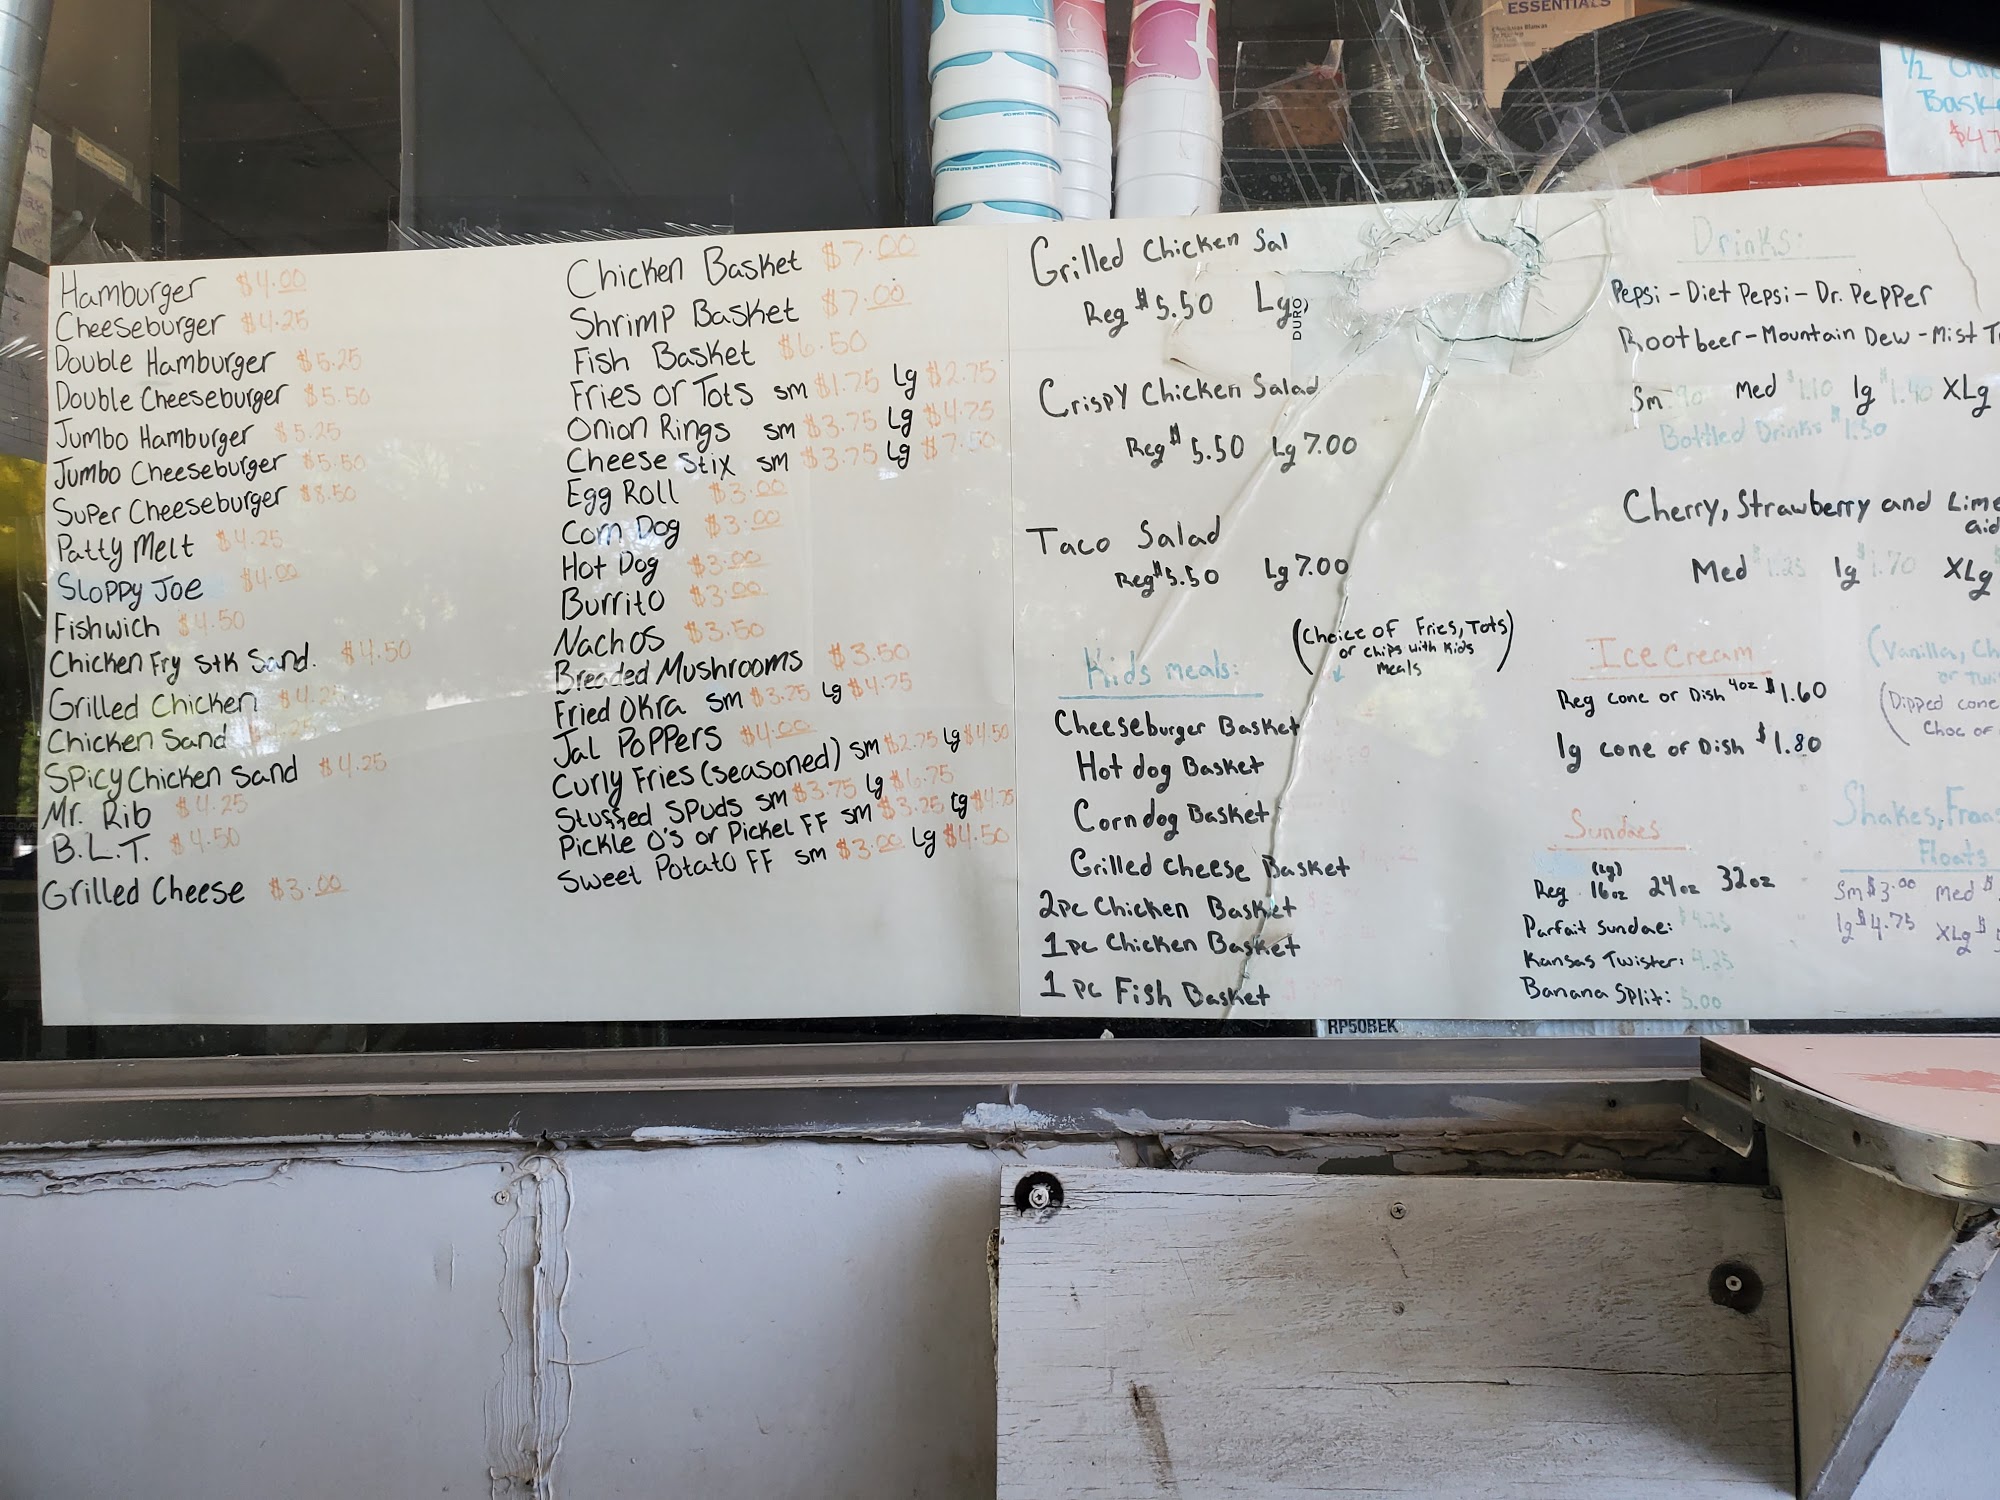 Hamburger $4.00
Cheeseburger $4.25
Double Hamburger $5.25
Double Cheeseburger $5.50
Jumbo Hamburger $5.25
Jumbo Cheeseburger $5.50
Super Cheeseburger $8.50
Patty Melt $4.25
Sloppy Joe $4.00
Fishwich $4.50
Chicken Fry Stk Sand. $4.50
Grilled Chicken $4.25
Chicken Sand
Spicy Chicken Sand $4.25
Mr. Rib $4.25
B.L.T. $4.50
Grilled Cheese $3.00
Chicken Basket $7.00
Shrimp Basket $7.00
Fish Basket $6.50
Fries or Tots sm $1.75 Lg $2.75
Onion Rings sm $3.75 Lg $4.75
Cheese Stix sm $3.75 Lg $7.50
Egg Roll $3.00
Corn Dog $3.00
Hot Dog $3.00
Burrito $3.00
Nachos $3.50
Breaded Mushrooms $3.50
Fried Okra sm $3.75 Lg $4.75
Jal Poppers $4.00
Curly Fries (seasoned) sm $2.75 Lg $4.50
Stuffed Spuds sm $3.75 Lg $6.75
Pickle O's or Pickel FF sm $3.25 Lg $4.75
Sweet Potato FF sm $3.00 Lg $4.50
Grilled Chicken Sal
Reg $5.50 Lg
DURO
Crispy Chicken Salad
Reg $5.50 Lg 7.00
Taco Salad
Reg $5.50 Lg 7.00
(Choice of Fries, Tots)
or chips with Kids
meals
Kids meals:
Cheeseburger Basket
Hot dog Basket
Corndog Basket
Grilled Cheese Basket
2pc Chicken Basket
1pc Chicken Basket
1pc Fish Basket
Drinks:
Pepsi - Diet Pepsi - Dr. Pepper
Rootbeer - Mountain Dew - Mist
Sm .90 Med $1.10 lg $1.40 XLg
Bottled Drinks $1.50
Cherry, Strawberry and Lime
aid
Med $1.25 lg $1.70 XLg
Ice Cream
(Vanilla, Ch
or Twi
Reg cone or Dish 4oz $1.60
(Dipped cone
Choc or
lg cone or Dish $1.80
Sundaes
(lg)
Reg 16oz 24oz 32oz
Parfait Sundae: $4.25
Kansas Twister: 4.25
Banana Split: 5.00
Shakes,
Floats
Sm $3.00 Med $
lg $4.75 XLg $
ESSENTIALS
1/2
Bask
RP50REK